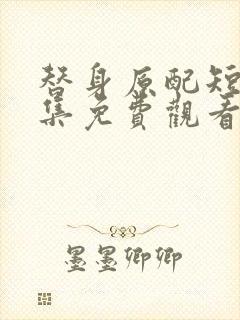 替身原配短
集免費觀看
墨墨卿卿